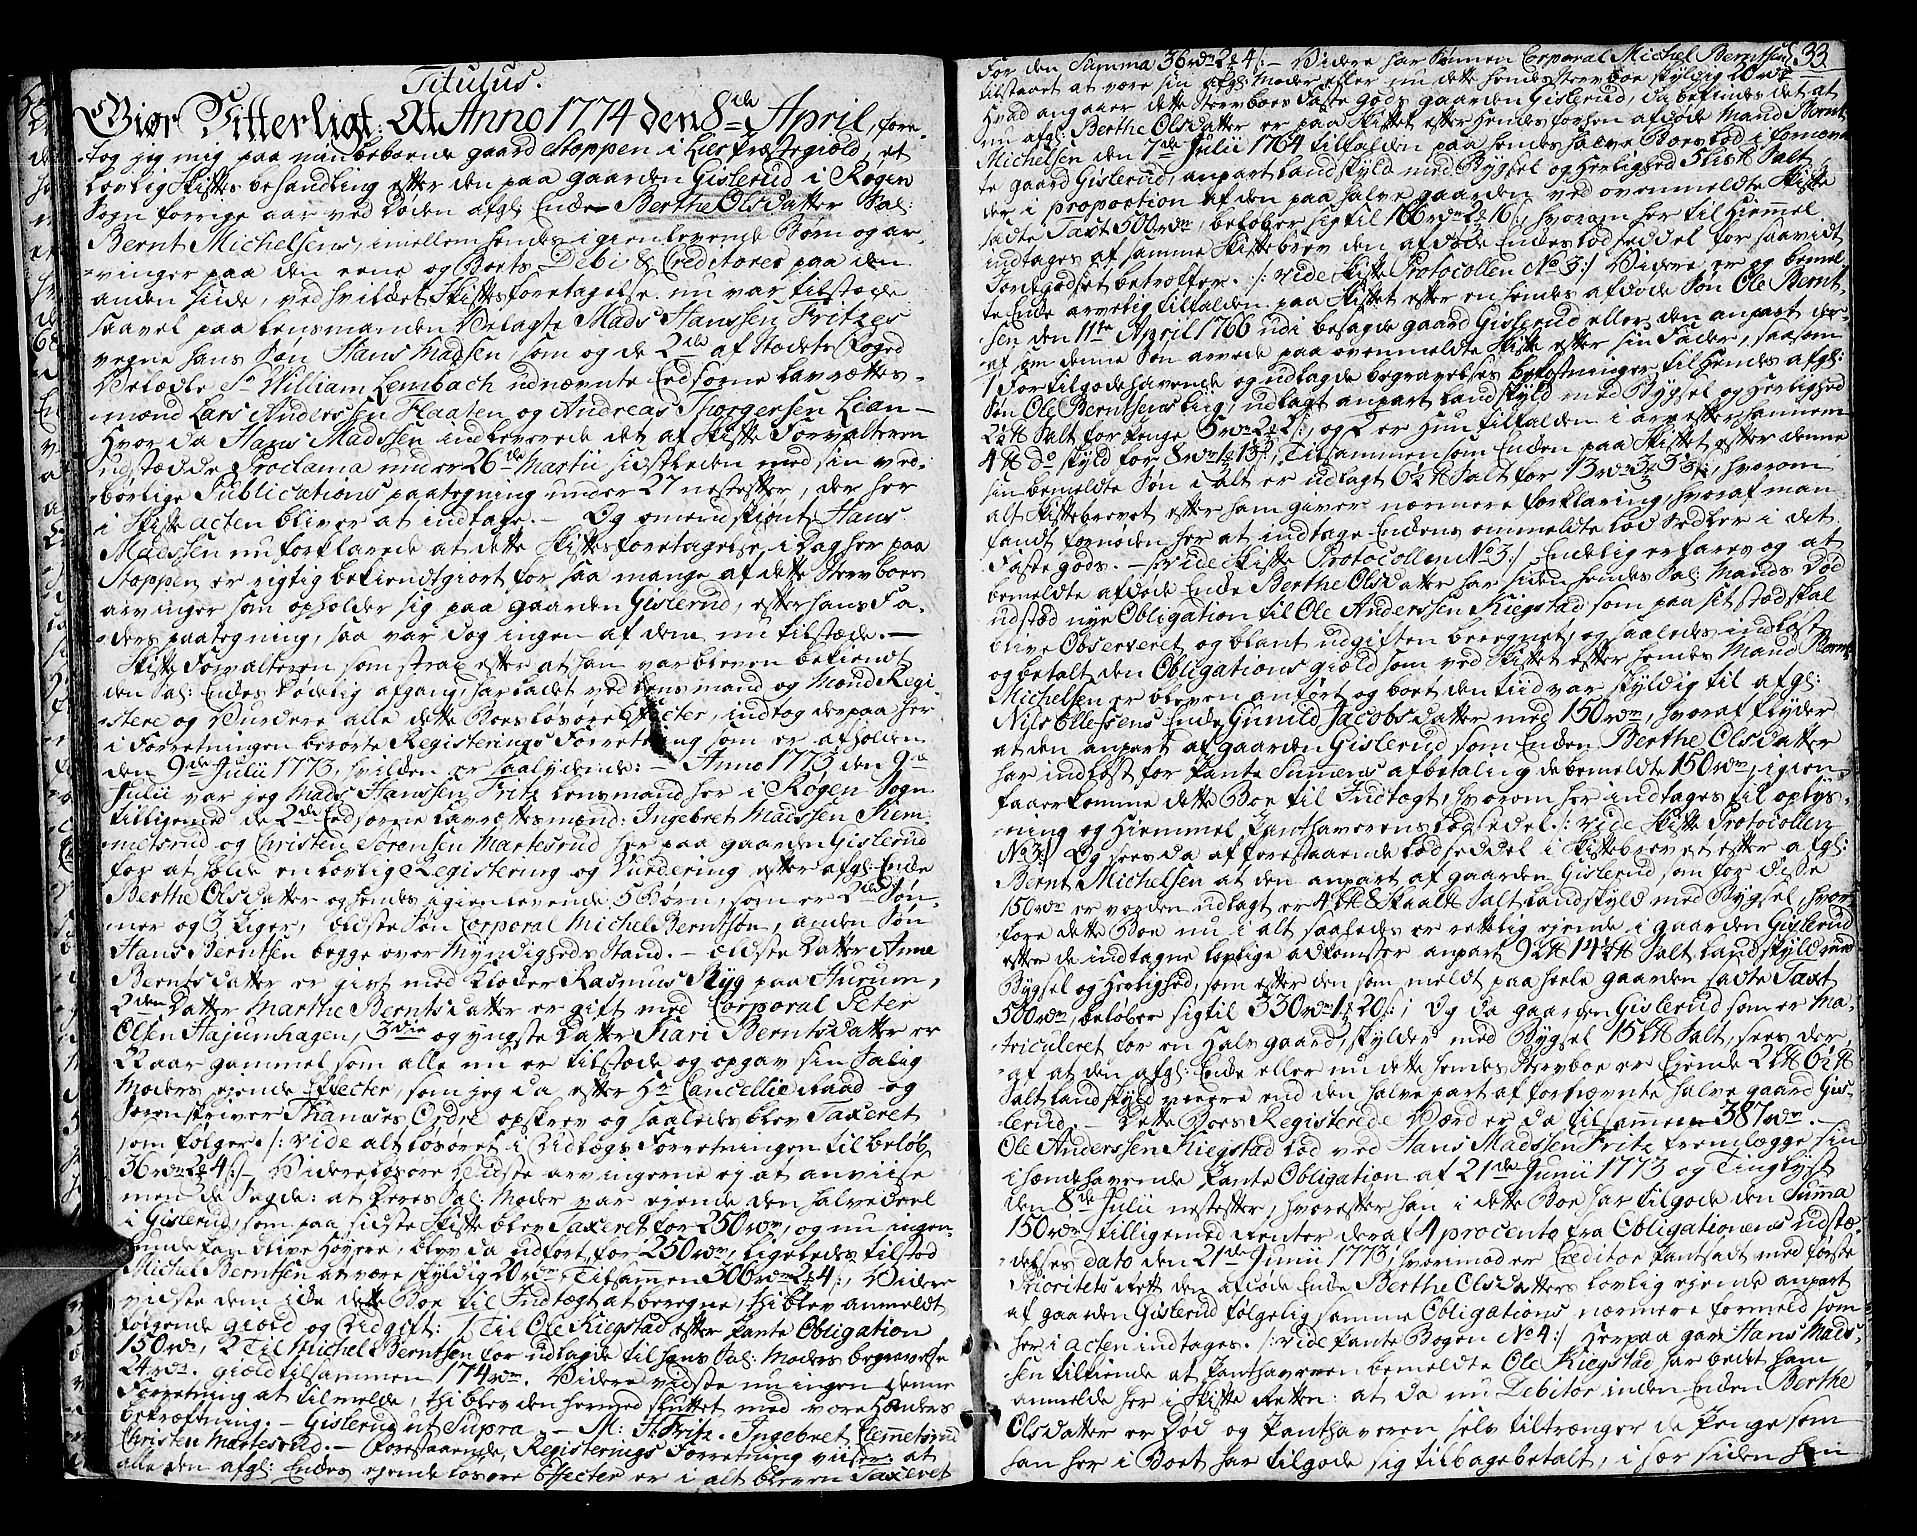 Titulus.
Giør Vitterligt: At Anno 1774 den 8de April, fore-
tog jeg mig paa min beboende gaard Stoppen i Lier Præstegiæld, et
lovlig Skiftes behandling efter den paa gaarden Gislerud i Røgen
Sogn forrige aar ved Døden afgl: Enke Berthe Olsdatter Sal:
Bernt Michelsens, imellem hendes igienlevende Børn og ar-
vinger paa den eene og Boets Debi & Creditores paa den
anden Siide, ved hvilket Skiftes foretagelse nu var tilstæde
saavel paa Lensmanden Velagte Mads Hanssen Fritzes
vegne hans Søn Hans Madsen, som og de 2de af Stædets Foged
Velædle Sr William Lembach udnævnte Eedsorne Lavrettes-
mænd Lars Anderssen Flaaten og Andreas Thorgersen Lian -
Hvor da Hans Madssen indleverede det af Skifte Forvalteren
udstædde Proclama under 26de Martii sidstleden med sin ved-
børlige Publications paategning under 27 nestefter, der her
i Skifte acten bliver at indtage. - Og omendskiønt Hans
Madssen nu forklarede at dette Skiftes foretagelse i Dag her paa
Stoppen er rigtig bekiendtgiort for saa mange af dette Sterboes
arvinger som opholder sig paa gaarden Gislerud, efter hans Fa-
ders paategning, saa var dog ingen af dem nu tilstæde. -
Skifte Forvalteren som strax efter at han var bleven bekiendt
den Sal: Enkes Dødelig afgang, har ladet ved Lensmand og Mænd Regi-
stere og Vurdere alle dette Boes Løsøre Effecter, indtog derpaa her
i Forretningen berørte Registerings Forretning som er afholden
den 9de Julii 1773, hvilken er saalydende: - Anno 1773 den 9de
Julii var jeg Mads Hanssen Fritz Lensmand her i Røgen Sogn
tilligemed de 2de Eedsorne Lavrettesmænd: Ingebret Madssen Klem-
metsrud og Christen Sørensen Martesrud her paa gaarden Gislerud
for at holde en lovlig Registering og Vurdering efter afgl: Enke
Berthe Olsdatter og hendes igienlevende 5 Børn, som er 2de Søn-
ner og 3 Piger, ældste Søn Corporal Michel Berntsen, anden Søn
Hans Berntsen begge over Myndigheds Stand. - ældste Datter Anne
Berntsdatter er givt med Kloker Rasmus Ryg paa Hurum,
2den Datter Marthe Berntsdatter er gift med Corporal Peter
Olsen Hajumhagen, 3die og yngste Datter Kari Berntsdatter er
22 aar gammel som alle nu er tilstæde og opgav sin Salig
Moders eyende Effecter, som jeg da efter Hr Cancellie Raad og
Sorenskriver Thamses Ordre opskrev og saaledes blev Taxeret
som følger. /: vide alt Løsøret i Vidløgs Forretningen til beløb
36 rdr 2 4 s:/ - Videre Løsøre Vidste arvingerne ey at anviise
men de Sagde: at deres Sal: Moder var eyende den halve deel
i Gislerud, som paa sidste Skifte blev Taxeret for 250 rdr, og nu ingen-
lunde kan blive Høyere, blev da udført for 250 rdr, ligeledes tilstod
Michel Berntsen at være skyldig 20 rdr, Tilsammen 306 rdr 2 4 s, Videre
vidste dem icke dette Boe til Indtægt at beregne, thi blev anmeldt
følgende giæld og Udgift: 1 Til Ole Kiegstad efter Pante Obligation
150 rdr, 2 Til Michel Berntsen for udlagde til hans Sal: Moders begravelse
24 rdr. giæld tilsammen 174 rdr. Videre vidste nu ingen denne
Forretning at tilmelde, thi blev den hermed sluttet med vore Hænders
bekræftning. - Gislerud ut Supra. - M: H: Fritz. Ingebret Clemetsrud
Christen Martesrud. - Forestaaende Registerings Forretning viiser at
alle den afgl: Enkes eyende Løsøre Effecter er i alt bleven Taxeret
33
For den Summa 36 rdr 2 4 s: - Videre har Sønnen Corporal Michel Berntsen
tilstaaet at være sin afgl: Moder eller nu dette hendes Sterboe skyldig 20 rdr
Hvad angaaer dette Sterboes Faste gods gaarden Gislerud, da befindes det at
nu afgl: Berthe Olsdatter er paa Skiftet efter Hendes forhen afdøde Mand Bernt
Michelsen den 7de Julii 1764 tilfalden paa hendes halve Boeslod i fornevn-
te gaard Gislerud, anpart Landskyld med Bygsel og Herlighed Salt
der i proportion af den paa halve gaarden ved ovenmeldte Skifte
sadte Taxt 500 rdr, beløber sig til 166 rdr 2 16 s, hvorom her til Hiemmel
indtages af samme Skiftebrev den afdøde Enkes Lodseddel for saavidt
Jordegodset betræffer. /: vide Skifte Protocollen No 3:/ Videre er og bemel-
te Enke arvelig tilfalden paa Skiftet efter en hendes afdøde Søn Ole Bernt-
sen den 11te April 1766 udi besagde gaard Gislerud eller den anpart der-
af som denne Søn arvede paa ovenmeldte Skifte efter sin Fader, saasom
1 For tilgodehavende og udlagde begravelses bekostninger til Hendes afgl:
Søn Ole Berntsens Liig, udlagt anpart Landskyld med Bygsel og Herlighed
2½ ℔ Salt for Penge 5 rdr 2 2 s, og 2 er Hun tilfalden i arv efter hannem
4 ℔ do skyld for 8 rdr 1 13 s, Tilsammen som Enken paa Skiftet efter denne
sin bemeldte Søn i alt er udlagt 6½ ℔ Salt for 13 rdr 3 , hvorom
alt Skiftebrevet efter ham giver nærmere Forklaring, hvoraf man
fandt fornøden her at indtage Enkens ommeldte Lod Sedler i det
Faste gods. - /: vide Skifte Protocollen No 3:/ Endelig erfares og at
bemeldte afdøde Enke Berthe Olsdatter har siden hendes Sal: Mands Død
udstæd nye Obligation til Ole Anderssen Kiegstad som paa sit stæd skal
blive Observeret og blant udgiften beregnet, og saaledes indløst
og betalt den Obligations giæld som ved Skiftet efter hendes Mand Bernt
Michelsen er bleven anført og boet den tiid var skyldig til afgl:
Nils Ellefsens Enke Gunild Jacobsdatter med 150 rdr, hvoraf flyder
at den anpart af gaarden Gislerud som Enken Berthe Olsdatter
har indløst for Pante Summens afbetalig de bemeldte 150 rdr, igien-
faaer komme dette Boe til Indtægt, hvorom her indtages til oplys-
ning og Hiemmel Panthaverens Lodsedel. /: vide Skifte Protocollen
No 3:/ Og sees da af forestaaende Lodseddel i Skiftebrevet efter afgl:
Bernt Michelsen at den anpart af gaarden Gislerud som for disse
150 rdr er vorden udlagt er Salt Landskyld med Bygsel, hvor-
fore dette Boe nu i alt saaledes er rettelig eyende i gaarden Gislerud
efter de indtagne lovlige adkomster anpart Salt Landskyld med
Bygsel og Herlighed, som efter den som meldt paa heele gaarden sadte Taxt
500 rdr, beløber sig til 330 rdr 1 20 s, Og da gaarden Gislerud som er Ma-
triculeret for en Halv gaard, skylder med Bygsel Salt, sees der-
af at den afgl: Enke eller nu dette hendes Sterboe er Eyende
Salt Landskyld meere end den halve part af fornævnte halve gaard Gis-
lerud. - Dette Boes Registerede Værd er da tilsammen 387 rdr. -
Ole Anderssen Kiegstad lod ved Hans Madssen Fritz fremlægge sin
ihændehavende Pante Obligation af 21de Junii 1773 og Tinglyst
den 8de Julii nestefter, hvorefter han i dette Boe har tilgode den Summa
150 rdr tilligemed Renter deraf 4 procento fra Obligationens udstæ-
delses dato den 21de Junii 1773, hvorimod er Creditor Pantsadt med første
Prioritets Rett den afdøde Enke Berthe Olsdatters lovlig eyende anpart
af gaarden Gislerud følgelig samme Obligations nærmere formeld som
her i acten indtages. /: vide Pante Bogen No 4:/ Herpaa gav Hans Mads-
sen tilkiende at Panthaveren bemeldte Ole Kiegstad har bedet ham
anmelde her i Skifte Retten: at da nu Debitor inden Enken Berthe
Olsdatter er død og Panthaveren selv tiltrænger de Penge som
han her i Boet har tilgode sig tilbagebetalt, i sær siden han